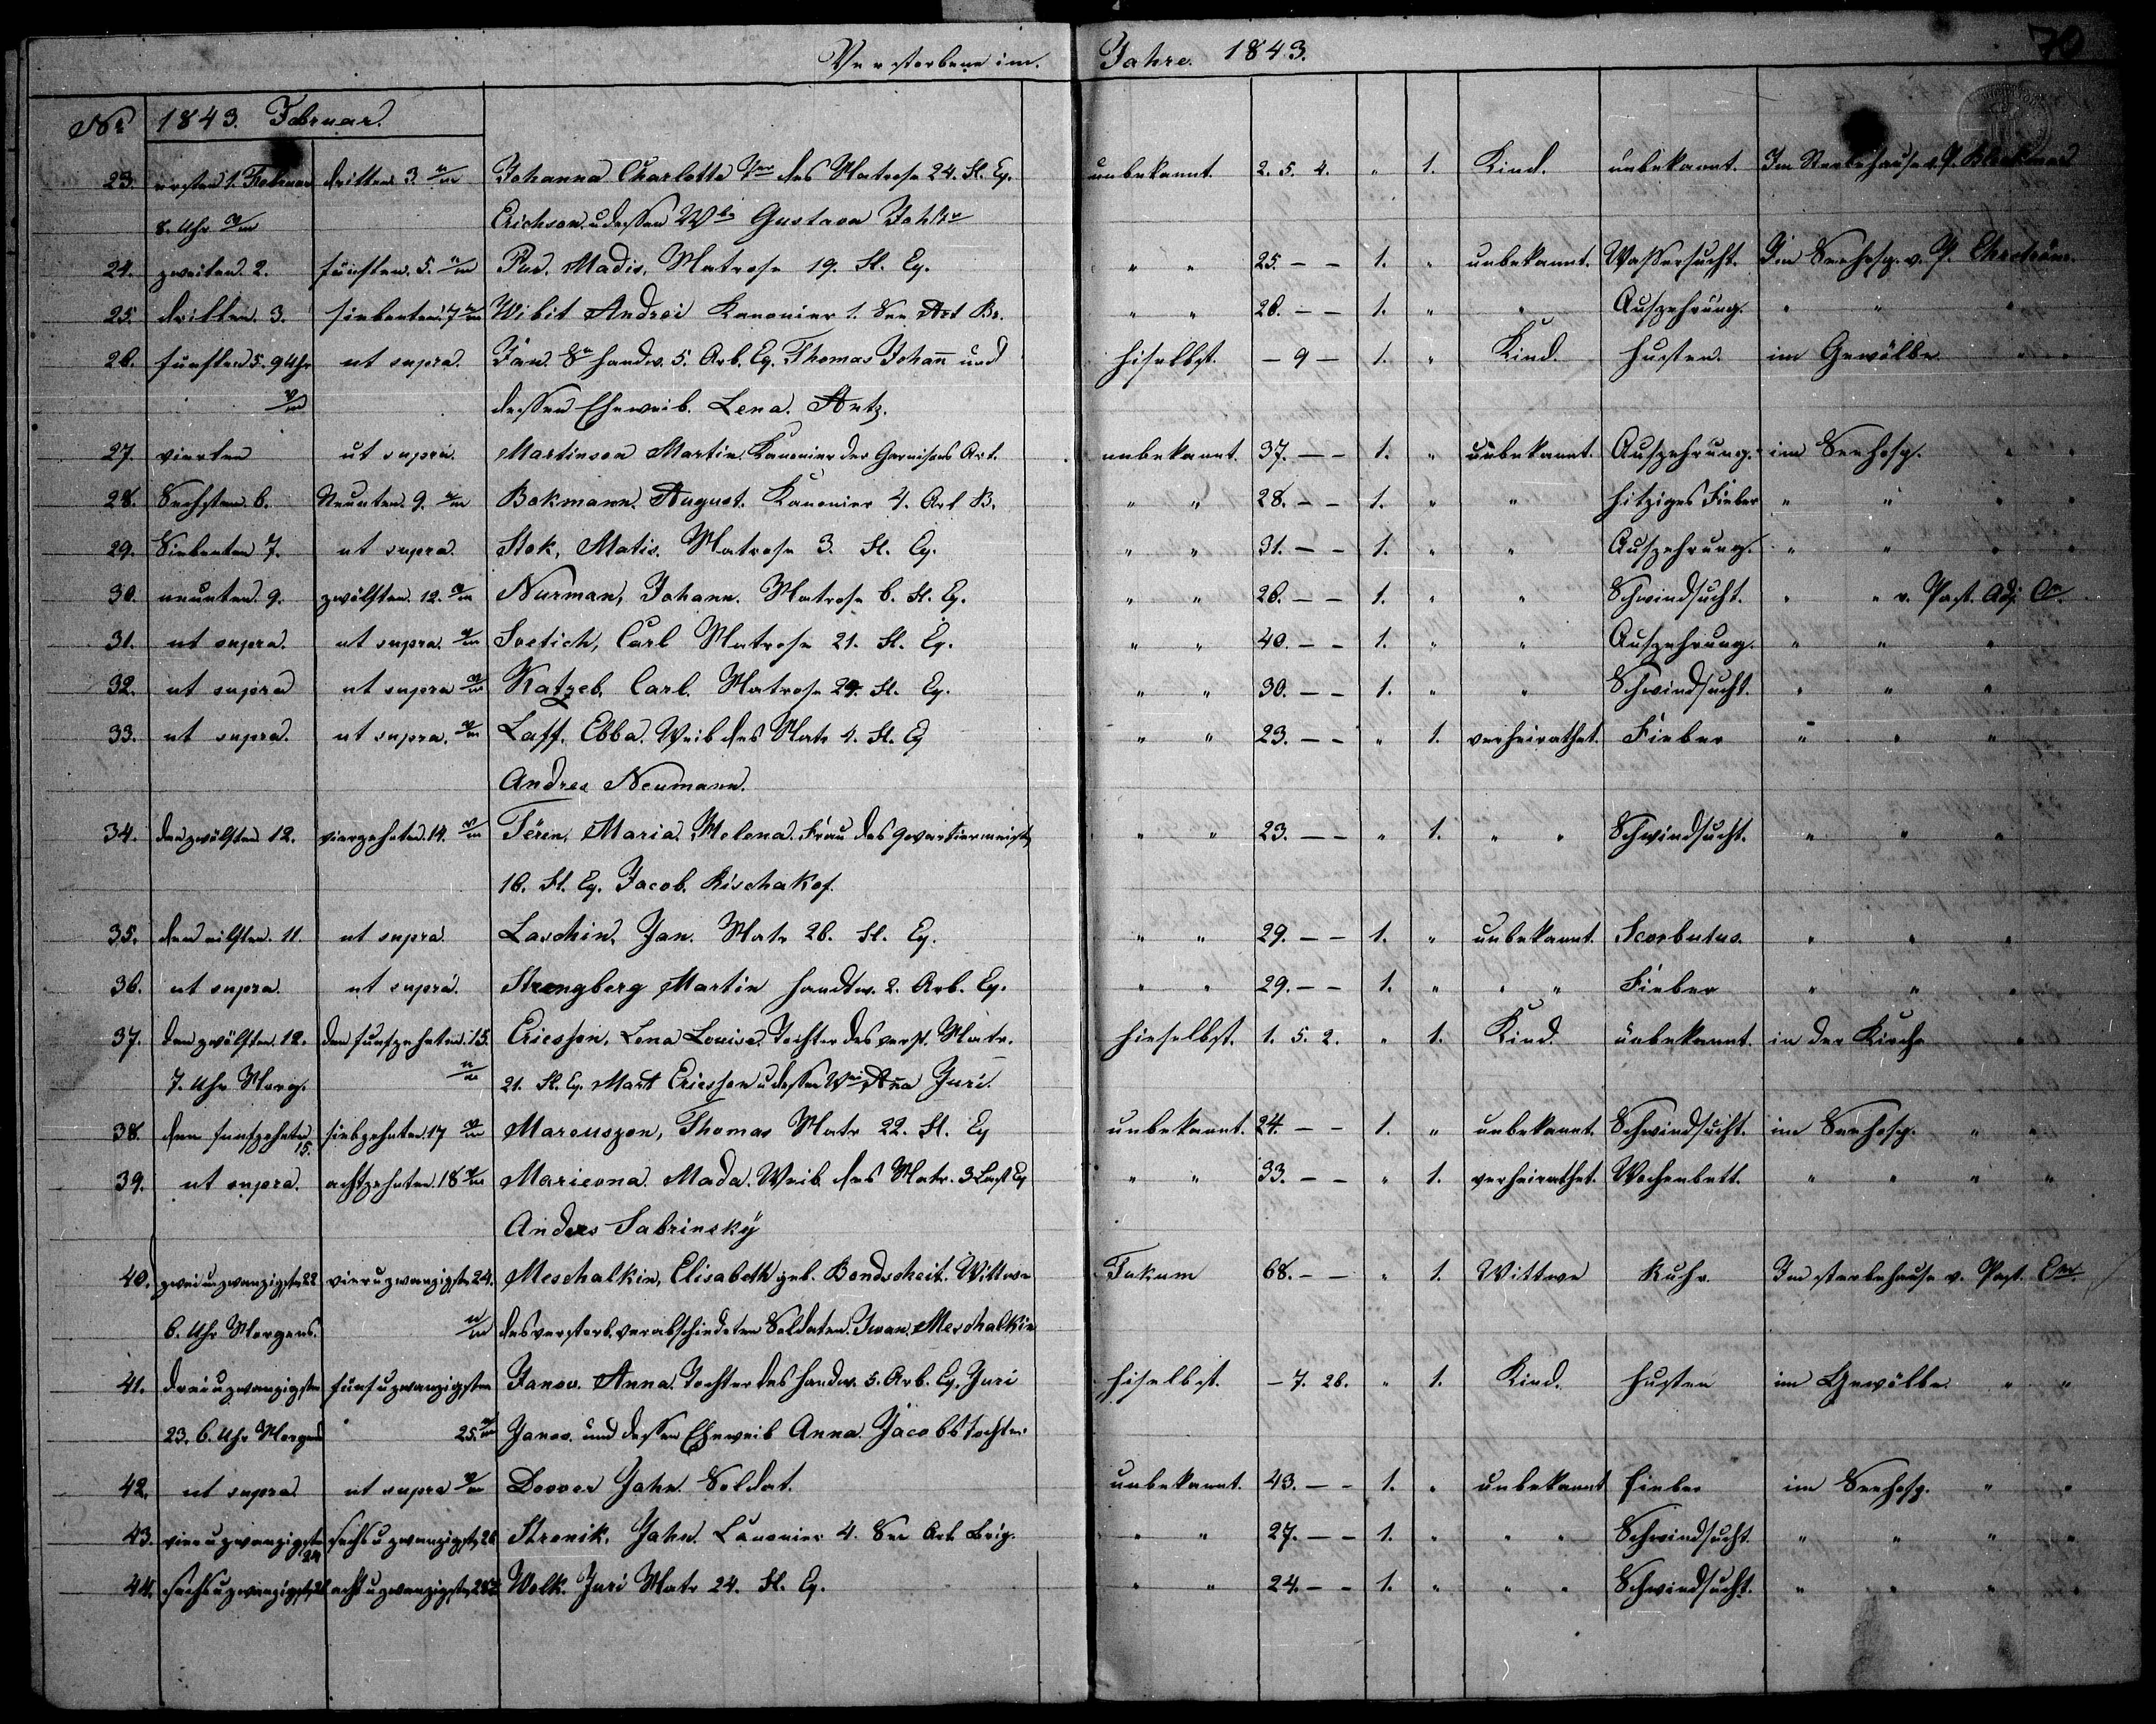 Verstorbene im Jahre 1843. 70
No 1843. Februar.
23. ersten 1. Februar dritten 3. n/m Johanna Charlotte des Matrose 24. Fl. Eq. unbekannt. 2. 5. 4. " 1. Kind. unbekannt. Im Sterbehause v. P.
8. Uhr Erichson u dessen Gustava
24. zweiten 2. fünften 5. n/m Madis, Matrose 19. Fl. Eq. " " 25. – – 1. " unbekannt. Wassersucht. Im Seehosp. v. P.
25. dritten 3. siebenten 7 Wibit Andrei Kanonier 1. See Art Br. " " 26. – – 1. " " Auszehrung. " " "
26. fünften 5. 9 Uhr ut supra. Jan. Handw. 5. Arb. Eq. Thomas Johan̄ und hiselbst. – 9 – 1. " Kind. Husten. im Gewölbe " "
dessen Eheweib. Lena. Antz.
27. vierten ut supra Martinson Martin Kanonier der Garnisons Art. unbekannt. 37. – – 1. " unbekannt. Auszehrung. im Seehosp. " "
28. Sechsten 6. Neunten 9. Bokmann August. Kanonier 4. Art B. " " 28. – – 1. " " hitziges Fieber " " " "
29. Siebenten 7. ut supra Stok, Matis. Matrose 3. Fl. Eq. " " 31. – – 1. " " Auszehrung. " " " "
30. neunten 9. zwölften 12. Nurman, Johann. Matrose 6. Fl. Eq. " " 26. – – 1. " " Schwindsucht. " " v. Past. Adj.
31. ut supra. ut supra. Soetich, Carl Matrose 21. Fl. Eq. " " 40. – – 1. " " Auszehrung. " " "
32. ut supra ut supra Katzeb, Carl. Matrose 24. Fl. Eq. " " 30. – – 1. " " Schwindsucht. " " "
33. ut supra. ut supra. Laff. Ebba. Weib des Matr 4. Fl. Eq " " 23. – – " 1. verheirathet. Fieber " " "
Andres Neumann.
34. den zwölften 12. vierzehnten 14. Maria Helena. Frau des Quartiermeist " " 23. – – " 1. " " Schwindsucht. " " "
16. Fl. Eq. Jacob. Kischakof.
35. den eilften 11. ut supra Laschin, Jan. Matr 26. Fl. Eq. " " 29. – – 1. " unbekannt. Scorbutus. " " "
36. ut supra. ut supra. Strengberg Martin Handw. 2. Arb. Eq. " " 29. – – 1. " " " Fieber " " "
37. den zwölften 12. den funfzehnten 15. Ericsson, Lena Louisa. Tochter des verst. Matr. hieselbst. 1. 5. 2. " 1. Kind. unbekannt. in der Kirche "
7. Uhr Morg. n/m 21. Fl. Eq. Mart Ericsson u dessen Anna Juri.
38. den funfzehnten 15. siebzehnten 17 Marcuszon, Thomas Matr 22. Fl. Eq unbekannt. 24. – – 1. " unbekannt. Schwindsucht. im Seehosp. " "
39. ut supra. achtzehnten 18 Maricona. Mada. Weib des Matr. 3 Last Eq " " 33. – – " 1. verheirathet. Wochenbett. " " " "
Anders Sabrinsky
40. zwei u zwanzigsten 22 vier u zwanzigsten 24. Meschalkin, Elisabeth geb. Bondscheit. Wittwe Tukum 68. – – " 1. Wittwe Ruhr. Im Sterbehause v. Past.
6. Uhr Morgens. n/m des verstorb. verabschiedeten Soldaten. Iwan. Meschalkin
41. drei u zwanzigsten fünf u zwanzigsten Janov. Anna. Tochter des Handw. 5. Arb. Eq. Juri hiselbst. – 7. 26. " 1. Kind. Husten im Gewölbe " "
23. 6. Uhr Morgens 25. Janov. und dessen Eheweib Anna. Jacobstochter
42. ut supra ut supra Doover Jahn. Soldat. unbekannt. 43. – – 1. " unbekannt Fieber im Seehosp. " "
43. vier u zwanzigsten 24 sechs u zwanzigsten 26 Stronik, Jahn. Canonier 4. See Art Brig. " " 27. – – 1. " " " Schwindsucht " " " "
44. sechs u zwanzigsten 26 acht u zwanzigsten 28 Wolk. Juri Matr 24. Fl. Eq. " " 24. – – 1. " " " Schwindsucht. " " " "